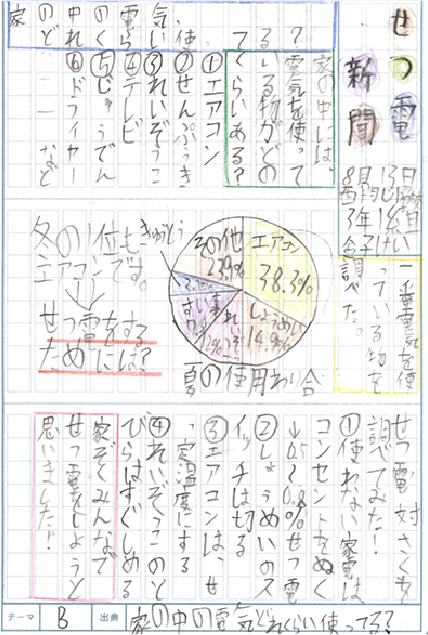 せつ電
新聞
8月13日
3年
家の中には、
電気を使って
いる物がどの
くらいある？
①エアコン
②せんぷうき
③れいぞうこ
④テレビ
⑤じゅうでん
⑥ドライヤー
など
一番電気を使
っている物を
調べた。
エアコン
38.3%
しょうめい
14.9%
その他
23.9%
きゅうとう
夏の使用わり合
冬の1位も
エアコンです。
せつ電をする
ためには？
せつ電対さくを
調べてみた！
①使わない家電は
コンセントをぬく
↓0.5〜0.8%せつ電
②しょうめいのス
イッチは切る
③エアコンは、せ
っ定温度にする
④れいぞうこのと
びらはすぐしめる
家ぞくみんなで
せつ電をしようと
思いました！
テーマ
B
出典
家の中の電気どれくらい使ってる？